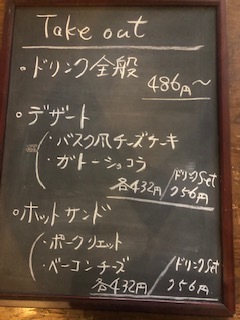 Take out
・ドリンク全般
486円〜
・デザート
・バスク風チーズケーキ
・ガトーショコラ
各432円/ドリンクSet 756円
・ホットサンド
・ポークリエット
・ベーコンチーズ
各432円/ドリンクSet 756円